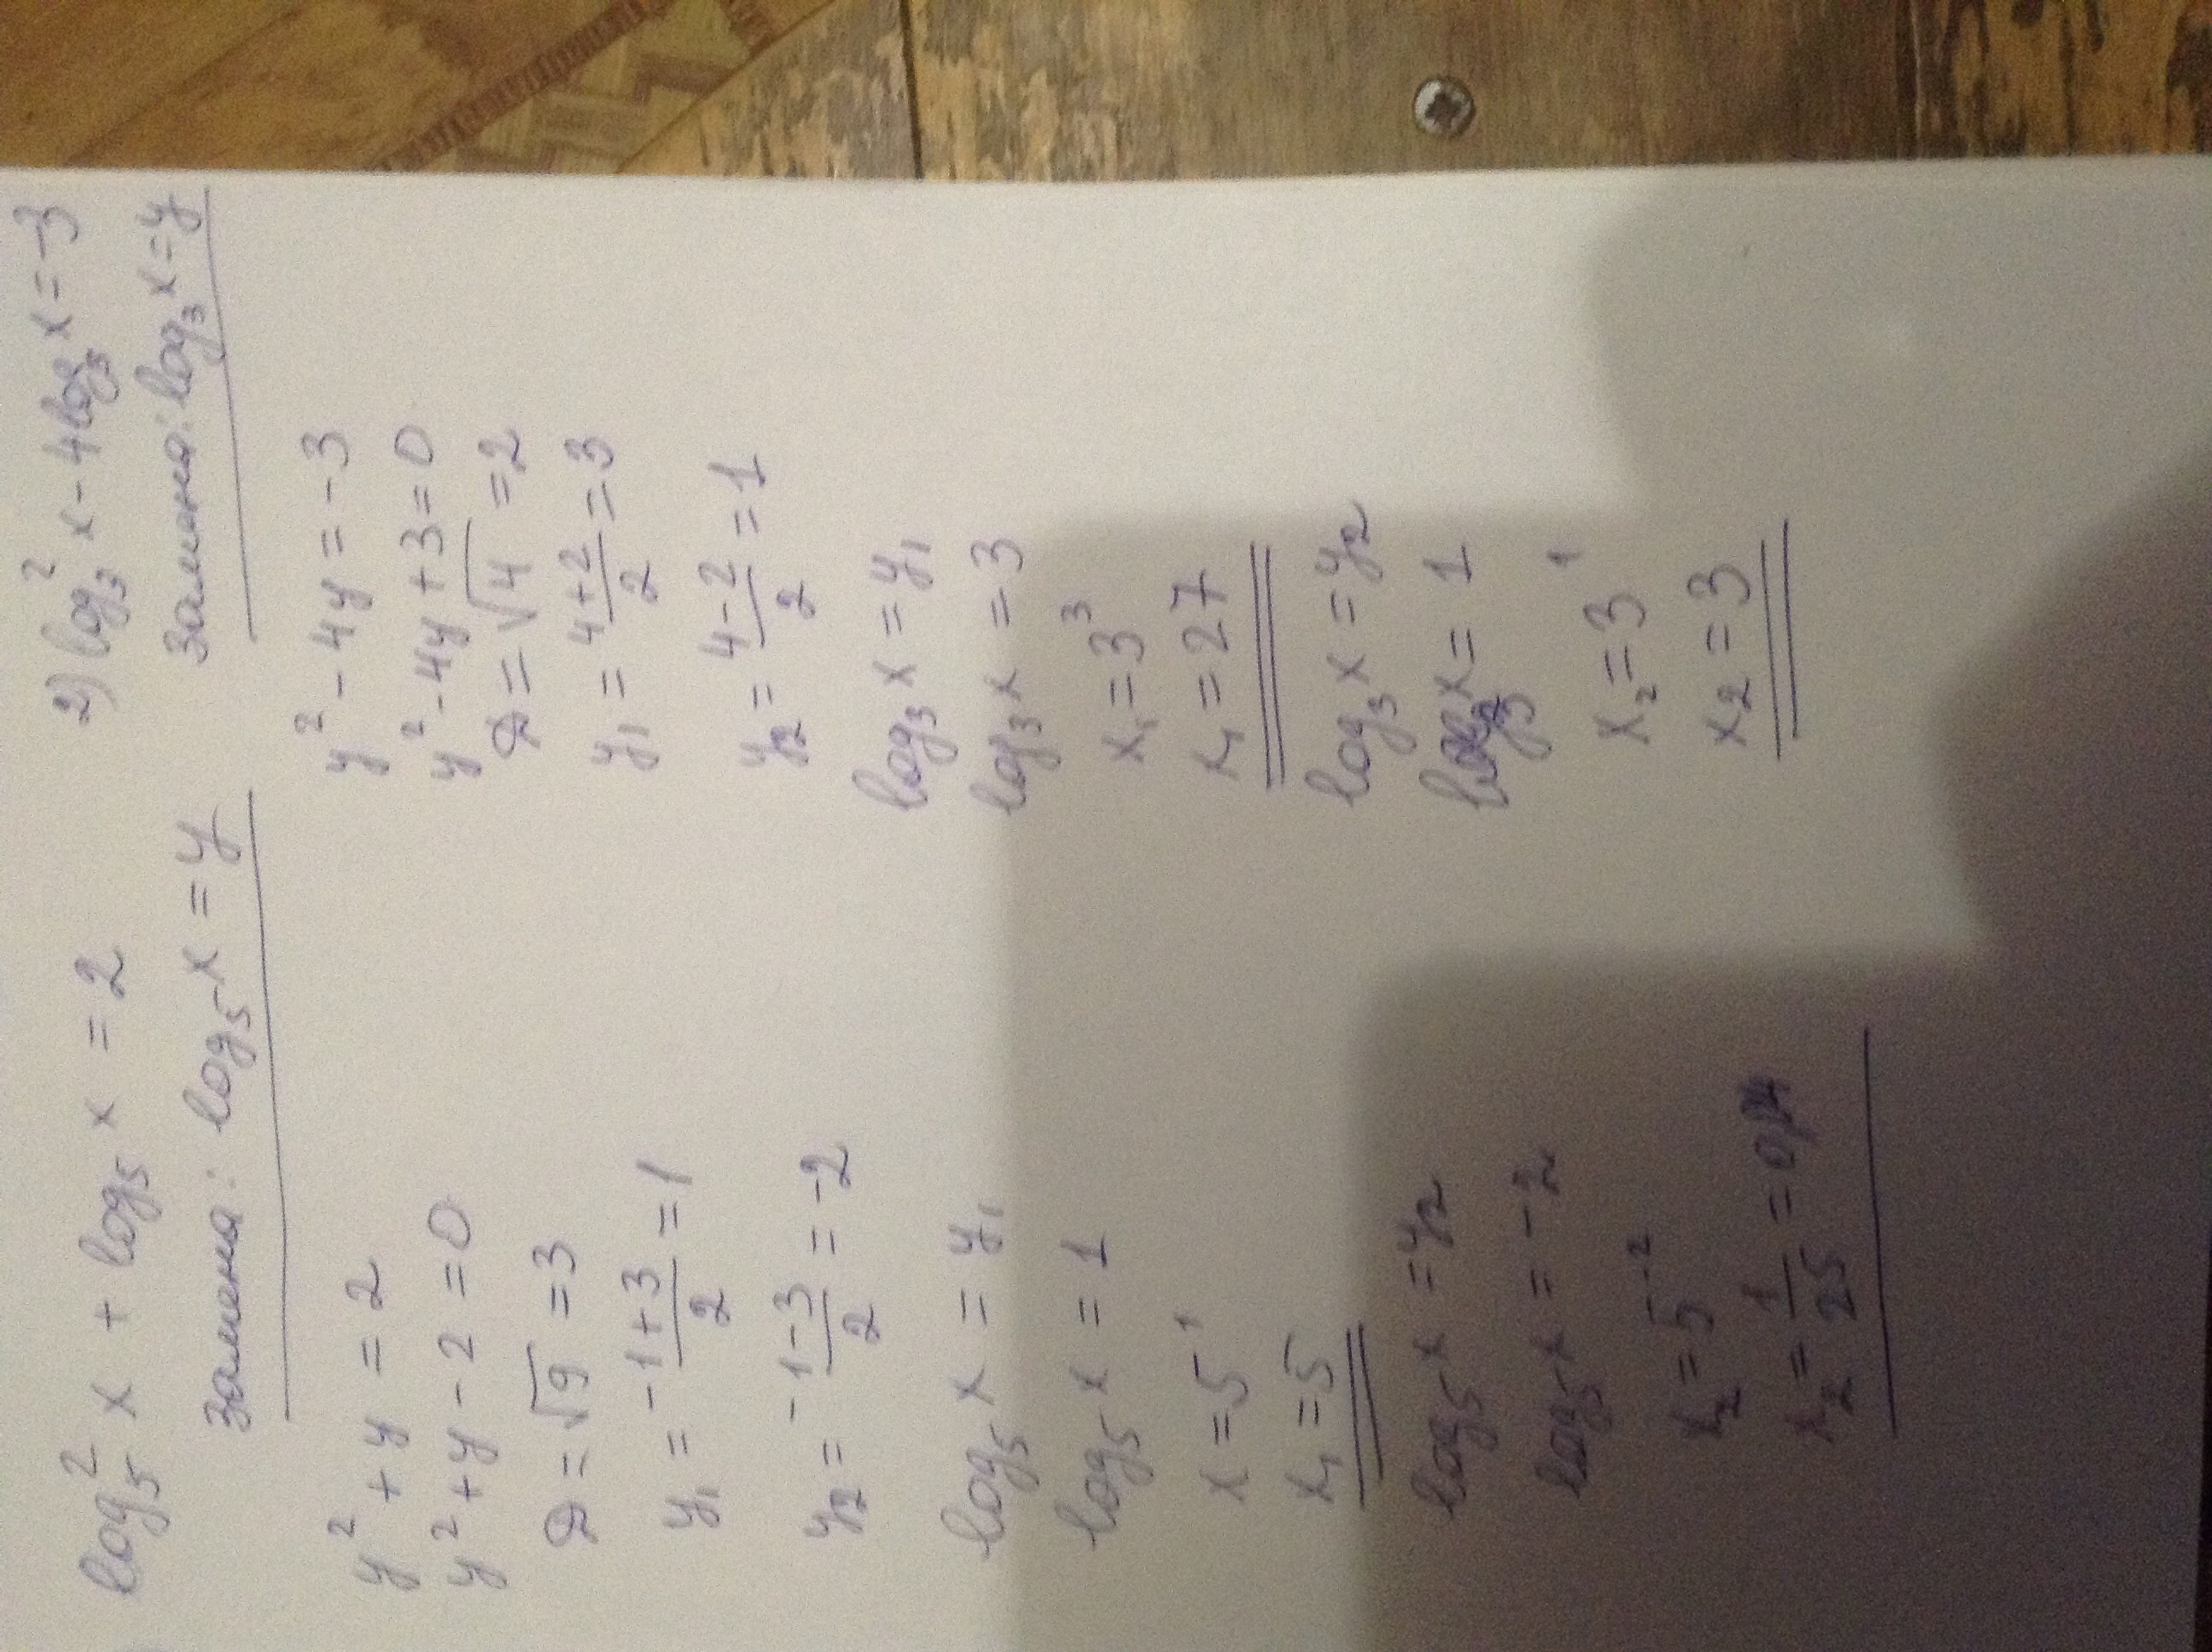 log₅² x + log₅ x = 2
Замена: log₅ x = y
y² + y = 2
y² + y - 2 = 0
D = √9 = 3
y₁ = (-1+3)/2 = 1
y₂ = (-1-3)/2 = -2
log₅ x = y₁
log₅ x = 1
x = 5¹
x₁ = 5
log₅ x = y₂
log₅ x = -2
x₂ = 5⁻²
x₂ = 1/25 = 0,04
2) log₃² x - 4 log₃ x = -3
Замена: log₃ x = y
y² - 4y = -3
y² - 4y + 3 = 0
D = √4 = 2
y₁ = (4+2)/2 = 3
y₂ = (4-2)/2 = 1
log₃ x = y₁
log₃ x = 3
x₁ = 3³
x₁ = 27
log₃ x = y₂
log₃ x = 1
x₂ = 3¹
x₂ = 3